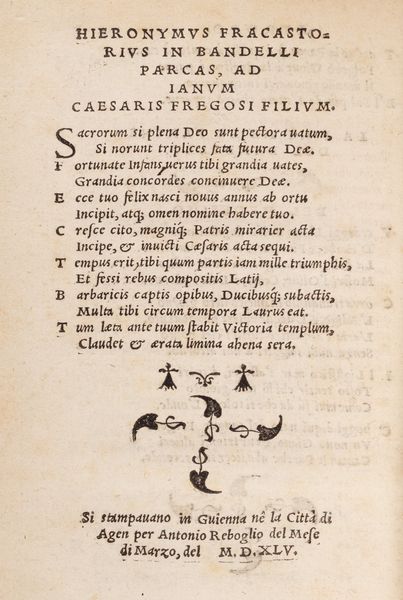 HIERONYMVS FRACASTO=
RIVS IN BANDELLI
PARCAS, AD
IANVM
CAESARIS FREGOSI FILIVM.
Sacrorum si plena Deo sunt pectora uatum,
Si norunt triplices fata futura Deæ.
Fortunate Infans, uerus tibi grandia uates,
Grandia concordes concinuere Deæ.
Ecce tuo felix nasci nouus annus ab ortu
Incipit, atq; omen nomine habere tuo.
Cresce cito, magniq; Patris mirarier acta
Incipe, & inuicti Cæsaris acta sequi.
Tempus erit, tibi quum partis iam mille triumphis,
Et fessi rebus compositis Latij,
Barbaricis captis opibus, Ducibusq; subactis,
Multa tibi circum tempora Laurus eat.
Tum læta ante tuum stabit Victoria templum,
Claudet & ærata limina ahena sera.
Si stampauano in Guienna nê la Città di
Agen per Antonio Reboglio del Mese
di Marzo, del M. D. XLV.